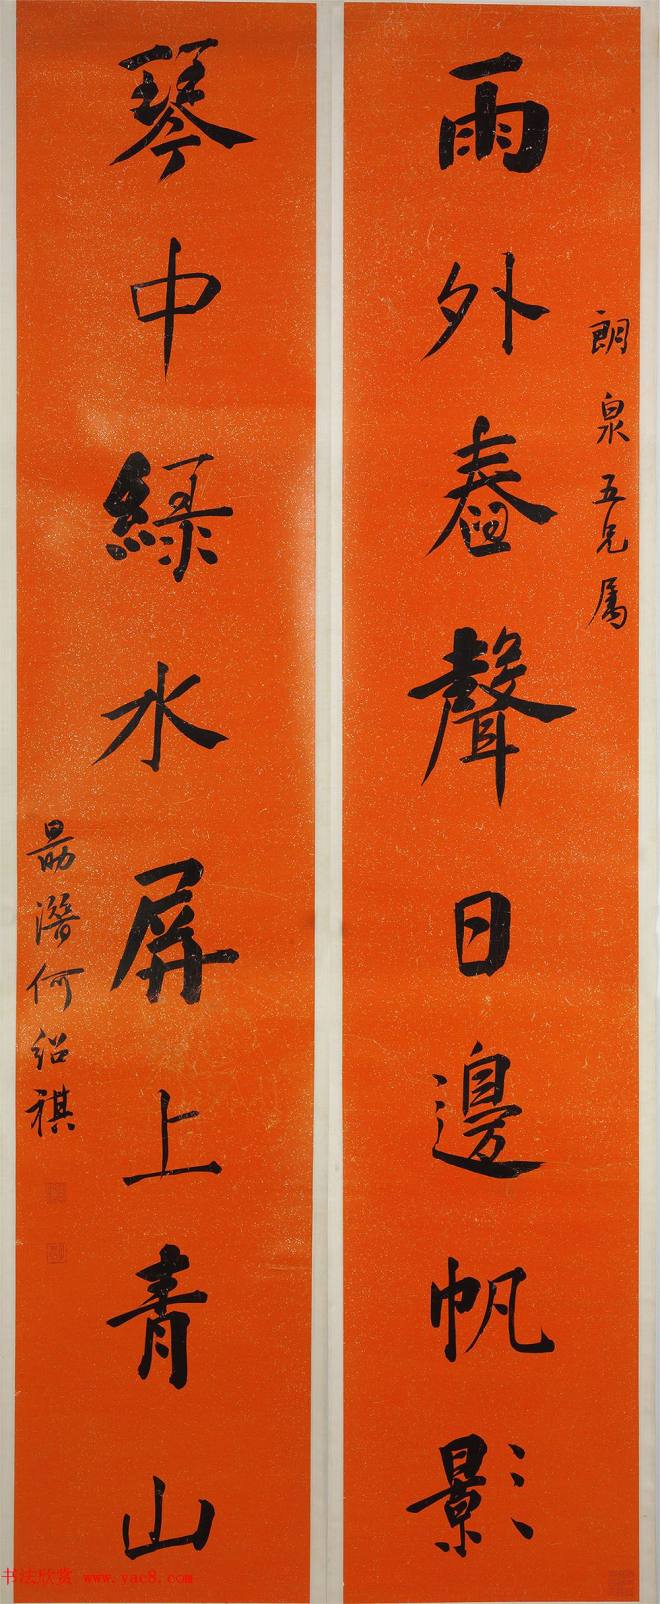 朗泉五兄属
雨外舂聲日邊帆影
琴中綠水屏上青山
勗潛何紹祺
书法欣赏 www.yac8.com